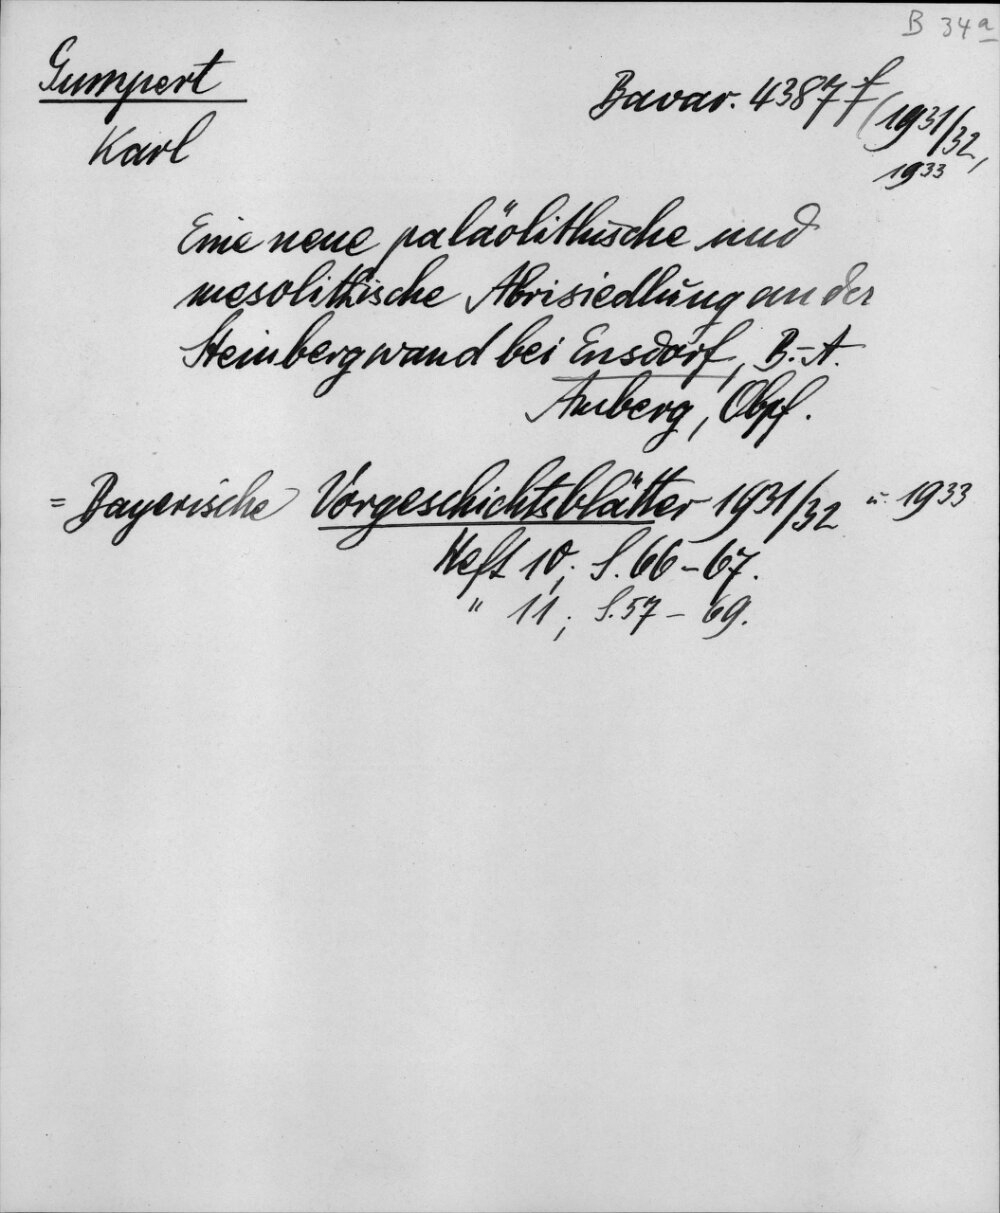 B 34a
Gumpert
Karl
Bavar. 4387 f (1931/32,
1933
Eine neue paläolithische und
mesolithische Abrisiedlung an der
Steinbergwand bei Ensdorf, B.-A.
Amberg, Obpf.
= Bayerische Vorgeschichtsblätter 1931/32 u. 1933
Heft 10; S. 66-67.
" 11; S. 57-69.